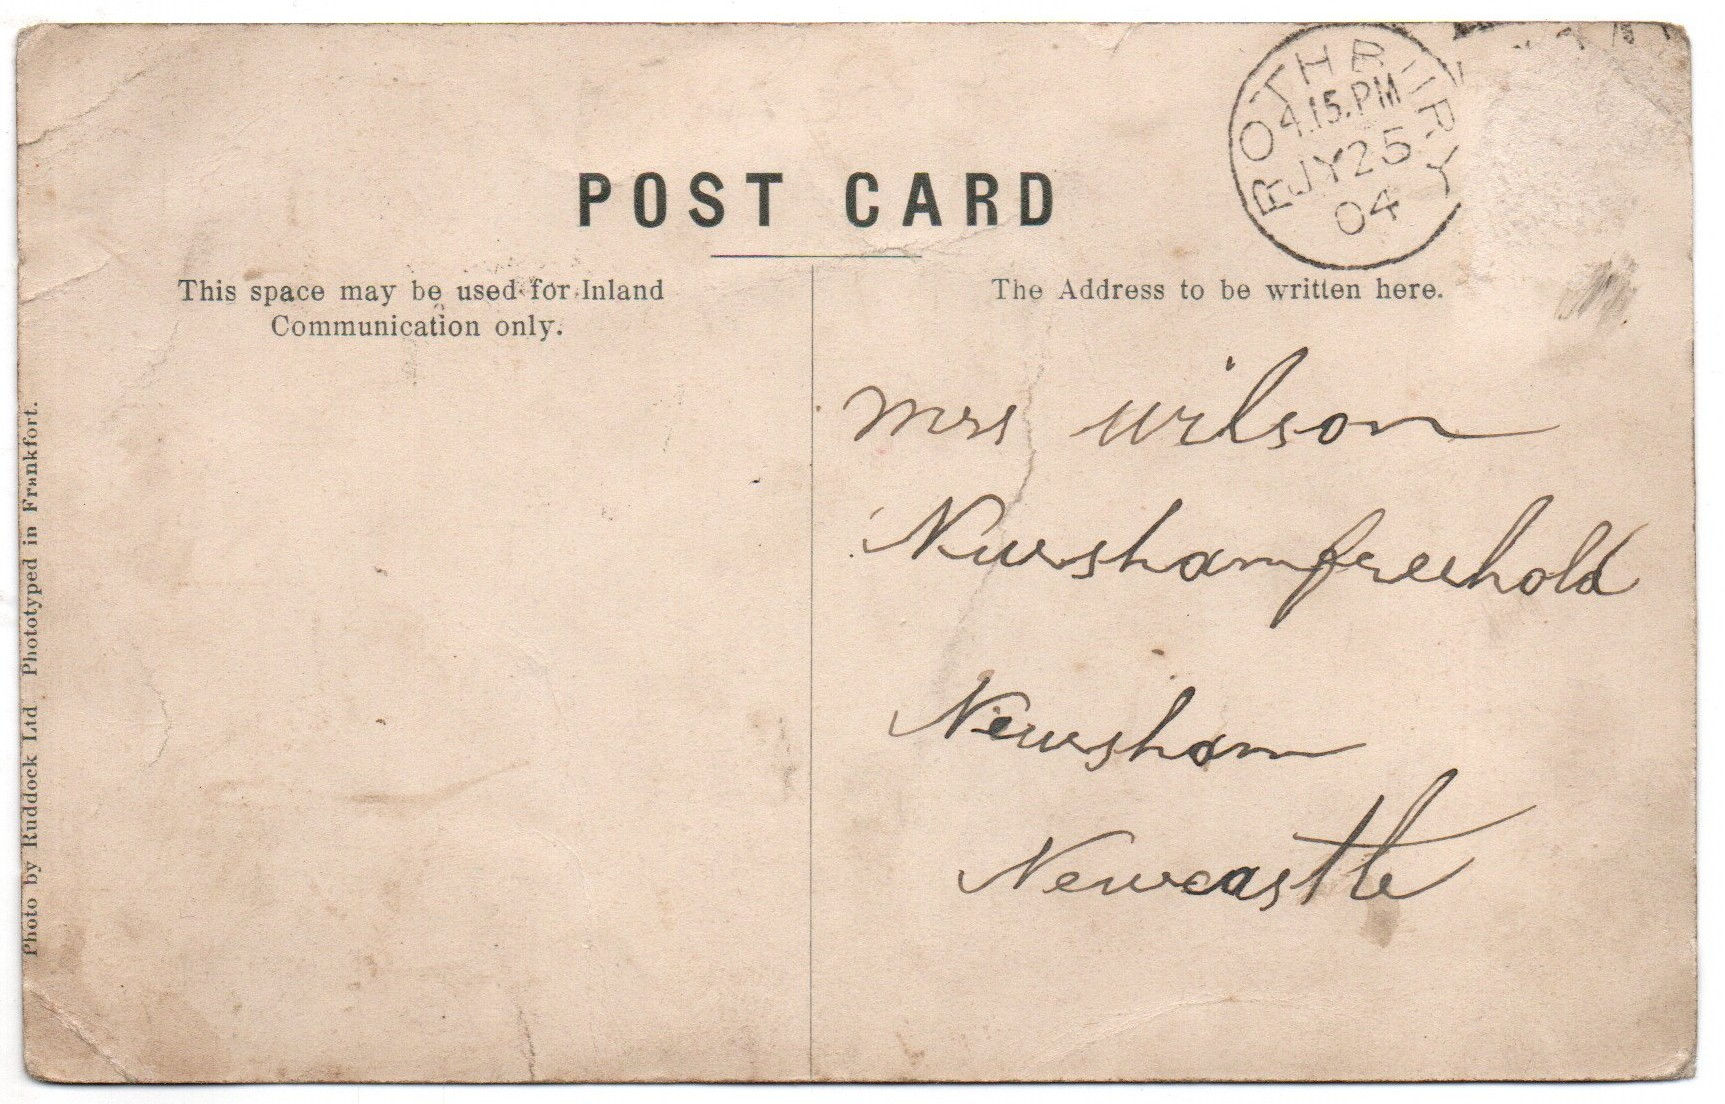 ROTHBURY
4.15.PM
JY25
04
POST CARD
This space may be used for Inland
Communication only.
The Address to be written here.
Mrs Wilson
Newshamfreehold
Newsham
Newcastle
Photo by Ruddock Ltd Phototyped in Frankfort.